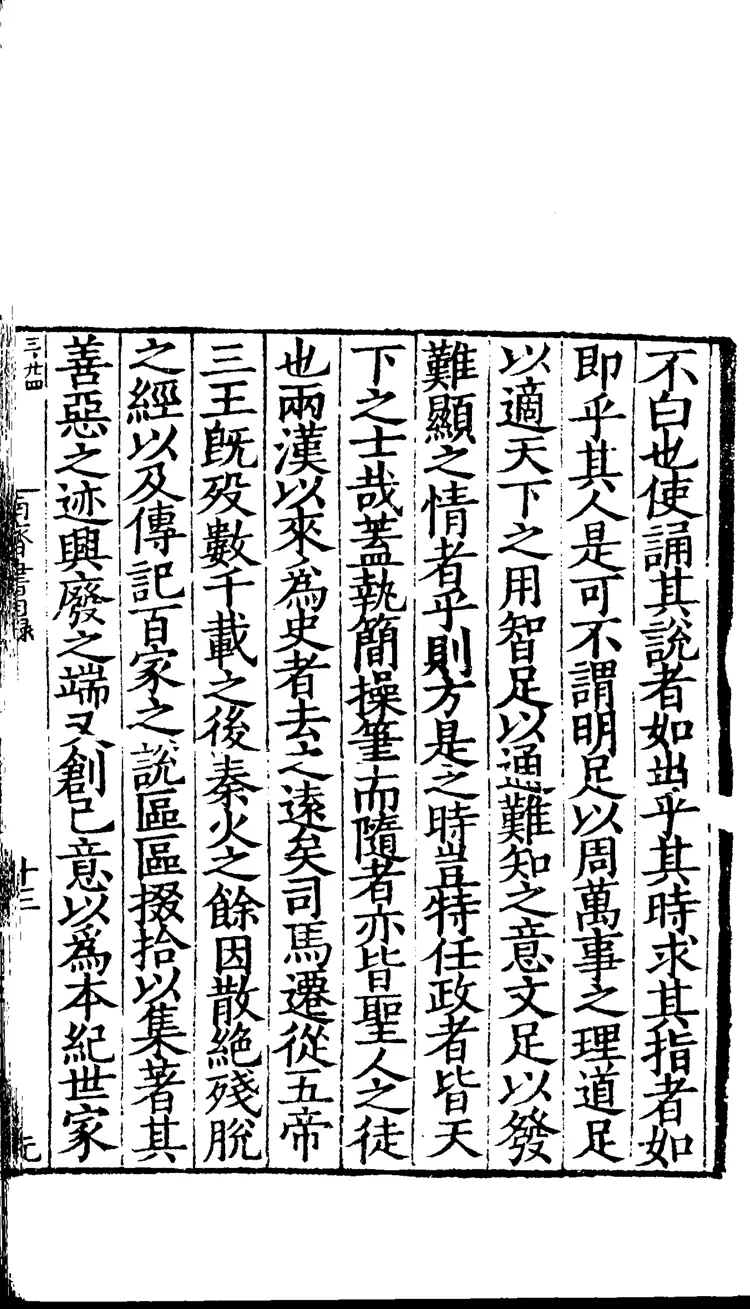 不白也使誦其說者如出乎其時求其指者如
即乎其人是可不謂明足以周萬事之理道足
以適天下之用智足以通難知之意文足以發
難顯之情者乎則方是之時豈特任政者皆天
下之士哉蓋執簡操筆而隨者亦皆聖人之徒
也兩漢以來爲史者去之遠矣司馬遷從五帝
三王旣歿數千載之後秦火之餘因散絶殘脫
之經以及傳記百家之說區區掇拾以集著其
善惡之迹興廢之端又創己意以爲本紀世家
三廿四
南齊書目錄
十三
元